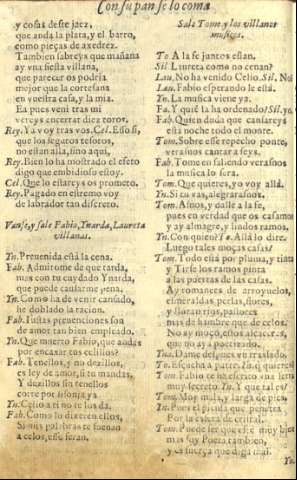 Con su pan se lo coma
y cosas deste jaez,
que anda la plata, y el barro,
como pieças de axedrez.
Tambien sabreys que mañana
ay vna fiesta villana,
que pareceros podria
mejor que la cortesana
en vuestra casa, y la mia.
Ea pues veni tras mi
vereys encerrar diez toros.
Rey. Ya voy tras vos. Cel. Esto si,
que los seguros tesoros
no estan alla, sino aqui.
Rey. Bien lo ha mostrado el efeto
digo que embidioso estoy.
Cel. Que lo estareys os prometo.
Rey. Pagado en estremo voy
de labrador tan discreto.
Vanse, y sale Fabio, Ynarda, Laureta
villanas.
Yn. Preuenida està la cena.
Fab. Admirome de que tarda,
mas con tu cuydado Ynarda,
que puede causarme pena.
Yn. Como ha de venir cansado,
he doblado la racion.
Fab. Iustas preuenciones son
de amor tan bien empleado.
Yn. Que muerto Fabio, que andas
por encaxar tus celillos?
Fab. Tenellos, y no dezillos,
es ley de amor, si tu mandas,
Y dezillos sin tenellos
corre por lisonja ya
Yn. Celio a ti no te los dà.
Fab. Como lo dixeren ellos,
Si mis palabras te suenan
a celos, esse seran.
Sale Tome, y los villanos
musicos.
To. A la fe juntos estan.
Sil. Laureta como no cenan?
Lau. No ha venido Celio. Sil. No
Lau. Fabio esperando le està.
Yn. La musica viene ya.
Fa. Y quiẽ la ha ordenado? Sil. yo.
Fab. Quien duda que cansareys
esta noche todo el monte.
Tom. Sobre esse repecho ponte,
verasnos cantar a seys.
Fab. Tome en saliendo verasnos
la musica fuera.
Tom. Que quieres, yo voy allà.
Yn. Si tu vas, alegrarasnos.
Tom. Amos, y dalle a la fe,
pues en verdad que os casamos
y ay almagre, y lindos ramos.
Yn. Con quien? To. Allà lo dire.
Luego tales moças casas?
Tom. Todo està por pluma, y tinta
y Tirse los ramos pinta
a las puertas de las casas.
Ay romances de arroyuelos,
esmeraldas, perlas, flores,
y lloran rios, pastores
mas de hambre que de celos.
No ay moço,
que no ay a
Yna. Dame despues vn traslado.
Tom. Fabio se ha
muy secreto. Yn. Y que tal es?
Tom. Muy mala, y larga de pies.
Yn. Pues el pienta que penetra
Por la esfera de cristal.
Tom. Puede ser que esse muy bien
mas soy Poeta tambien,
y es fuerça que diga mal.